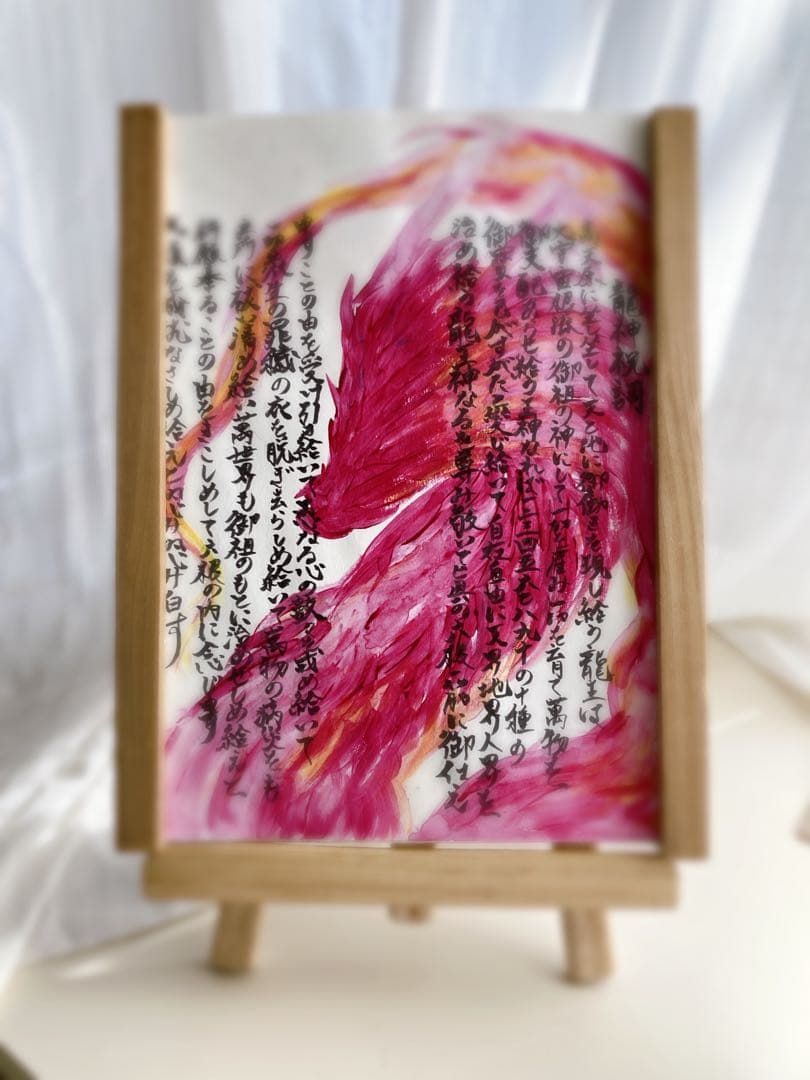 龍神祝詞
高天原に坐し坐して天と地に御働きを現し給う龍王は
大宇宙根源の御祖の神にして一切を産み一切を育て萬物を
御支配あらせ給う王神なれば一二三四五六七八九十の十種の
御寶を己がすがたと変じ給いて自在自由に天界地界人界を
治め給う龍王神なるを尊み敬いて真の六根一筋に御仕え
申すことの由を受引き給いて愚かなる心の数々を戒め給いて
一切衆生の罪穢の衣を脱ぎ去らしめ給いて萬物の病災をも
立所に祓い清め給い萬世界も御祖のもとに治めせしめ給えと
祈願奉ることの由をきこしめして六根の内に念じ申す
大願を成就なさしめ給えとかしこみかしこみ白す